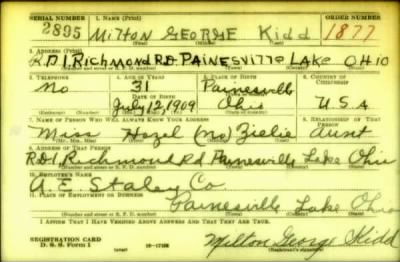 SERIAL NUMBER 1. NAME (Print) ORDER NUMBER
2895 MILTON GEORGE Kidd 1877
(First) (Middle) (Last)
2. ADDRESS (Print)
R.D 1, RICHMOND RD. PAINESVILLE LAKE OHIO
(Number and street or R. F. D. number) (Town) (County) (State)
3. TELEPHONE 4. AGE IN YEARS 5. PLACE OF BIRTH 6. COUNTRY OF CITIZENSHIP
No 31 Painesville
DATE OF BIRTH
July 12, 1909 Ohio U.S.A
(Exchange) (Number) (Mo.) (Day) (Yr.) (State or country)
7. NAME OF PERSON WHO WILL ALWAYS KNOW YOUR ADDRESS 8. RELATIONSHIP OF THAT PERSON
Miss Hazel (No) Zielie Aunt
(Mr., Mrs., Miss) (First) (Middle) (Last)
9. ADDRESS OF THAT PERSON
R.D 1, Richmond Rd Painesville Lake Ohio
(Number and street or R. F. D. number) (Town) (County) (State)
10. EMPLOYER'S NAME
A. E. Staley Co.
11. PLACE OF EMPLOYMENT OR BUSINESS
Painesville Lake Ohio
(Number and street or R. F. D. number) (Town) (County) (State)
I AFFIRM THAT I HAVE VERIFIED ABOVE ANSWERS AND THAT THEY ARE TRUE.
REGISTRATION CARD
D. S. S. Form 1 (over) 16-17105 Milton George Kidd
(Registrant's signature)